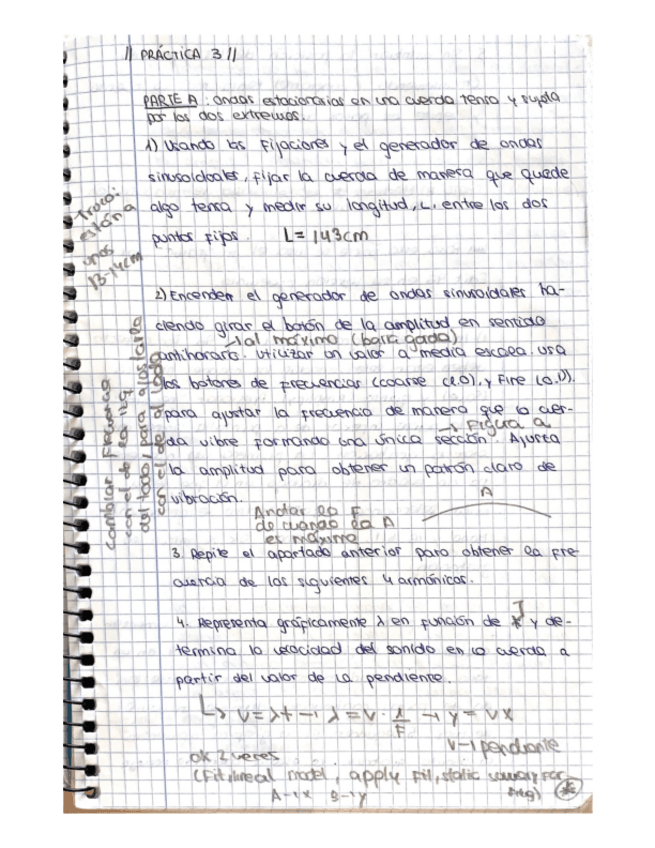 // PRÁCTICA 3 //
PARTE A : ondas estacionarias en una cuerda tensa y sujeta
por los dos extremos.
1) Usando las fijaciones y el generador de ondas
sinusoidales, fijar la cuerda de manera que quede
algo tensa y medir su longitud, L, entre los dos
puntos fijos. L = 143cm
Truco:
está a
unos
13-14cm
2) Encender el generador de ondas sinusoidales ha-
ciendo girar el botón de la amplitud en sentido
→ al máximo (bara gada)
antihorario. Utilizar un valor a media escala. Usa
los botones de frecuencias (coarse (1.0), y Fine (0.1)).
para ajustar la frecuencia de manera que la cuer-
→ Figura a
da vibre formando una única sección. Ajusta
la amplitud para obtener un patrón claro de
vibración.
Anotar la F
de cuando la A
es máxima
A
cambiar frecuencia
con el de la izq
del todo, para ajustarla
con el de al lado
3. Repite el apartado anterior para obtener la fre-
cuencia de los siguientes 4 armónicos.
4. Representa gráficamente λ en función de T y de-
termina la velocidad del sonido en la cuerda a
partir del valor de la pendiente.
↳ v = λf → λ = v · 1/F → y = vx
v → pendiente
ok 2 veces
(Fit, lineal model, apply Fit,
A → x B → y